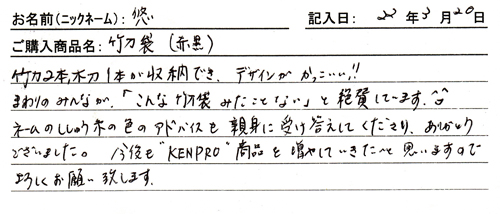 お名前(ニックネーム): 悠 記入日: 23年3月20日
ご購入商品名: 竹刀袋 (赤黒)
竹刀2本,木刀1本が収納でき、デザインがかっこいい!!
まわりのみんなが、「こんな竹刀袋みたことない」と絶賛しています。^^
ネームのししゅう糸の色のアドバイスも親身に受け答えしてくださり、ありがとう
ございました。今後も"KENPRO"商品を増やしていきたいと思いますので
よろしくお願い致します。